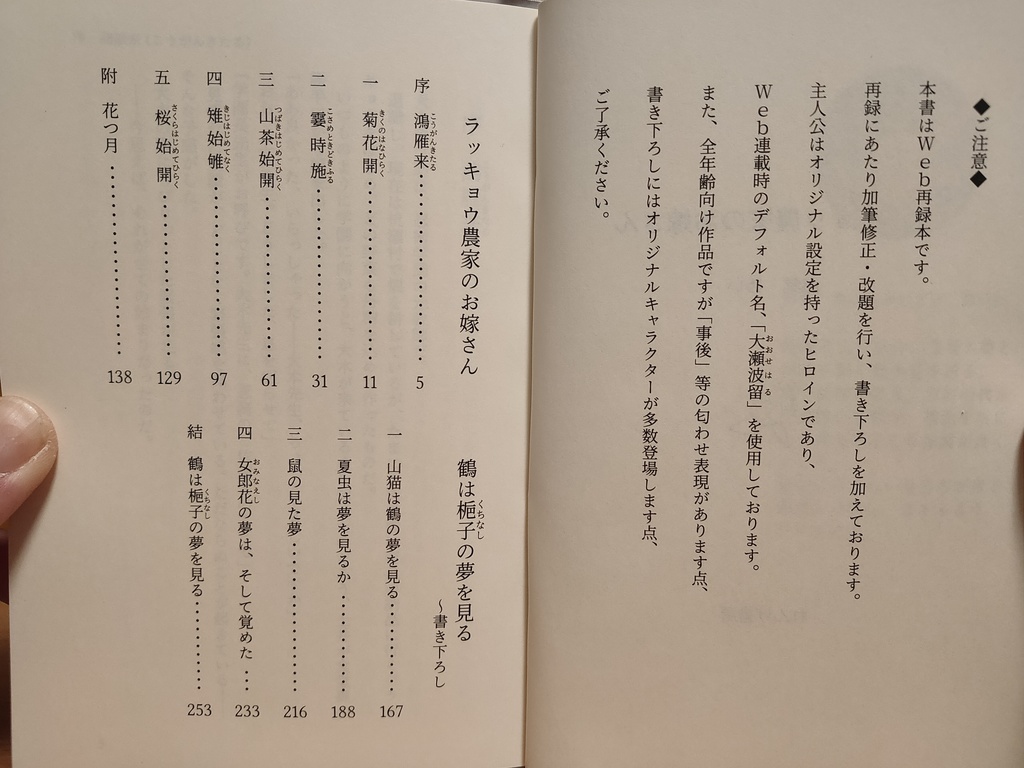 ◆ご注意◆
本書はWeb再録本です。
再録にあたり加筆修正・改題を行い、書き下ろしを加えております。
主人公はオリジナル設定を持ったヒロインであり、
Web連載時のデフォルト名、「大瀬波留」を使用しております。
おおせはる
また、全年齢向け作品ですが「事後」等の匂わせ表現があります点、
書き下ろしにはオリジナルキャラクターが多数登場します点、
ご了承ください。
ラッキョウ農家のお嫁さん
序 鴻雁来 5
こうがんきたる
一 菊花開 11
きくのはなひらく
二 霎時施 31
こさめときどきふる
三 山茶始開 61
つばきはじめてひらく
四 雉始雊 97
きじはじめてなく
五 桜始開 129
さくらはじめてひらく
附 花つ月 138
鶴は梔子の夢を見る
くちなし
~書き下ろし
一 山猫は鶴の夢を見る 167
二 夏虫は夢を見るか 188
三 鼠の見た夢 216
四 女郎花の夢は、そして覚めた 233
おみなえし
結 鶴は梔子の夢を見る 253
くちなし